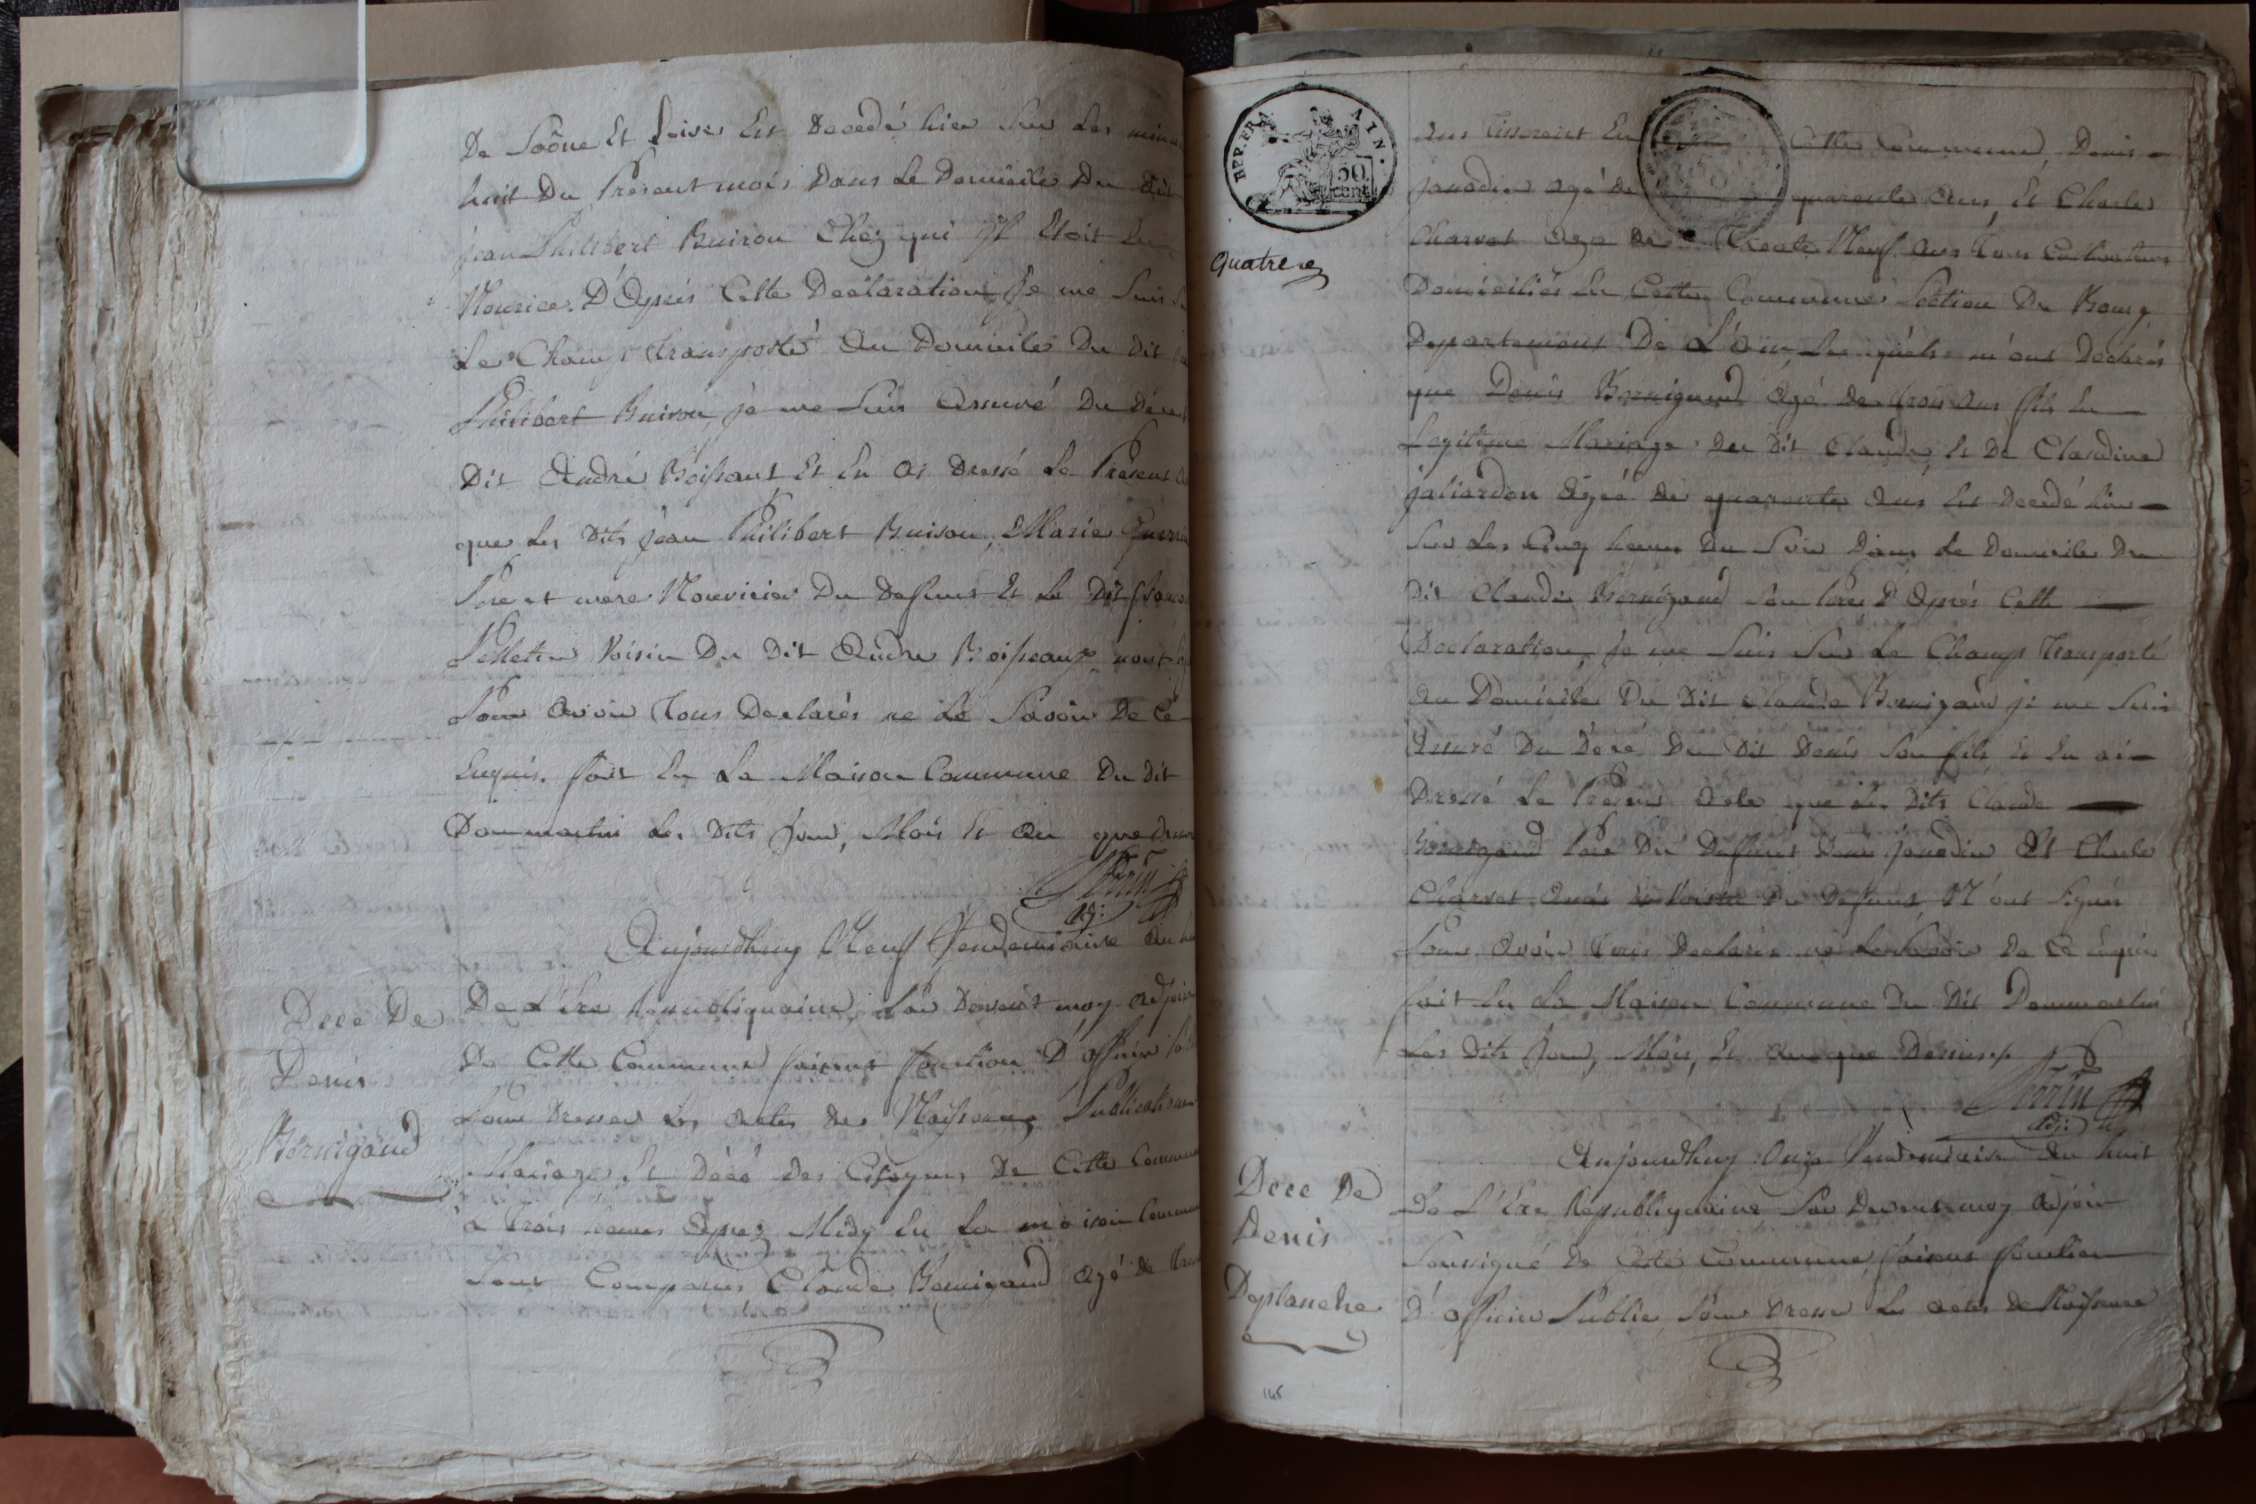 De Saône Et Loire Est Decedé hier Sur Les
huit Du Present mois Dans Le Domicile Du dit
jean Philibert Buiron Chéz qui Il Etoit En
Nourice. D'Après Cette Declaration, Je me Suis
Le Champ transporté au Domicile Du Dit
Philibert Buiron, je me Suis assuré Du Décé
Dit André Boissaut Et En ai Dressé Le Present
que Les Dits Jean Philibert Buiron, Marie
Pere et mere Nouricier Du Defunt Et Le Dit
Voisin Du Dit André n'ont
Pour avoir Tous Declarés ne Le Savoir De Ce
Enquis. fait En La Maison Commune Du Dit
Dommartin Les Dits Jour, Mois Et An que dessus
Perrin
adj:
Aujourdhuy Neuf Vendemiaire An
Dece De
Denis
Bernigaud
De L'Ere Republiquaine, Par Devant moy Adjoint
De Cette Commune faisant fonction D'officier
Pour Dresser Les Actes Des Naissances Publications
Mariage, Et Décé Des Citoyens De Cette Commune
à Trois heures Après Midy En La maison Commune
Sont Comparus, Claude Bernigaud Agé De
BEP. FRA. AIN. 50 cent
Quatre
ans En Cette Commune, Denis
Janodin agé De quarente Ans, Et Charles
Charvet Agé De Trente Neuf Ans Tous Cultivateurs
Domiciliés En Cette Commune Section Du Bourg
Departement De L'Ain, Les quels m'ont Declarés
que Denis Bernigaud Agé De trois Ans fils En
Legitime Mariage du Dit Claude, Et De Claudine
jaliardon Agée De quarente Ans Est Decedé hier
Sur Les Cinq heures Du Soir Dans Le Domicile Du
Dit Claude Bernigaud Son Pere D'Après Cette
Declaration, Je me Suis Sur Le Champ Transporté
Au Domicile Du Dit Claude Bernigaud je me Suis
Assuré Du Décé Du Dit Denis Son fils Et En ai
Dressé Le Present Acte que Les Dits Claude
Bernigaud Pere Du Deffunt Denis janodin Et Charle
Charvet Voisin Du Defunt N'ont Signés
Pour Avoir Tous Declarés ne Le Savoir De Ce Enquis
fait En La Maison Commune Du Dit Dommartin
Les Dits Jour, Mois, Et An que Dessus
Perrin
adj:
Aujourdhuy Onze Vendemiaire An huit
Dece De
Denis
Deplanche
De L'Ere Republiquaine Par Devant moy Adjoin
Soussigné De Cette Commune, faisant fonction
D'officier Public Pour Dresser Les Actes De Naissance
145